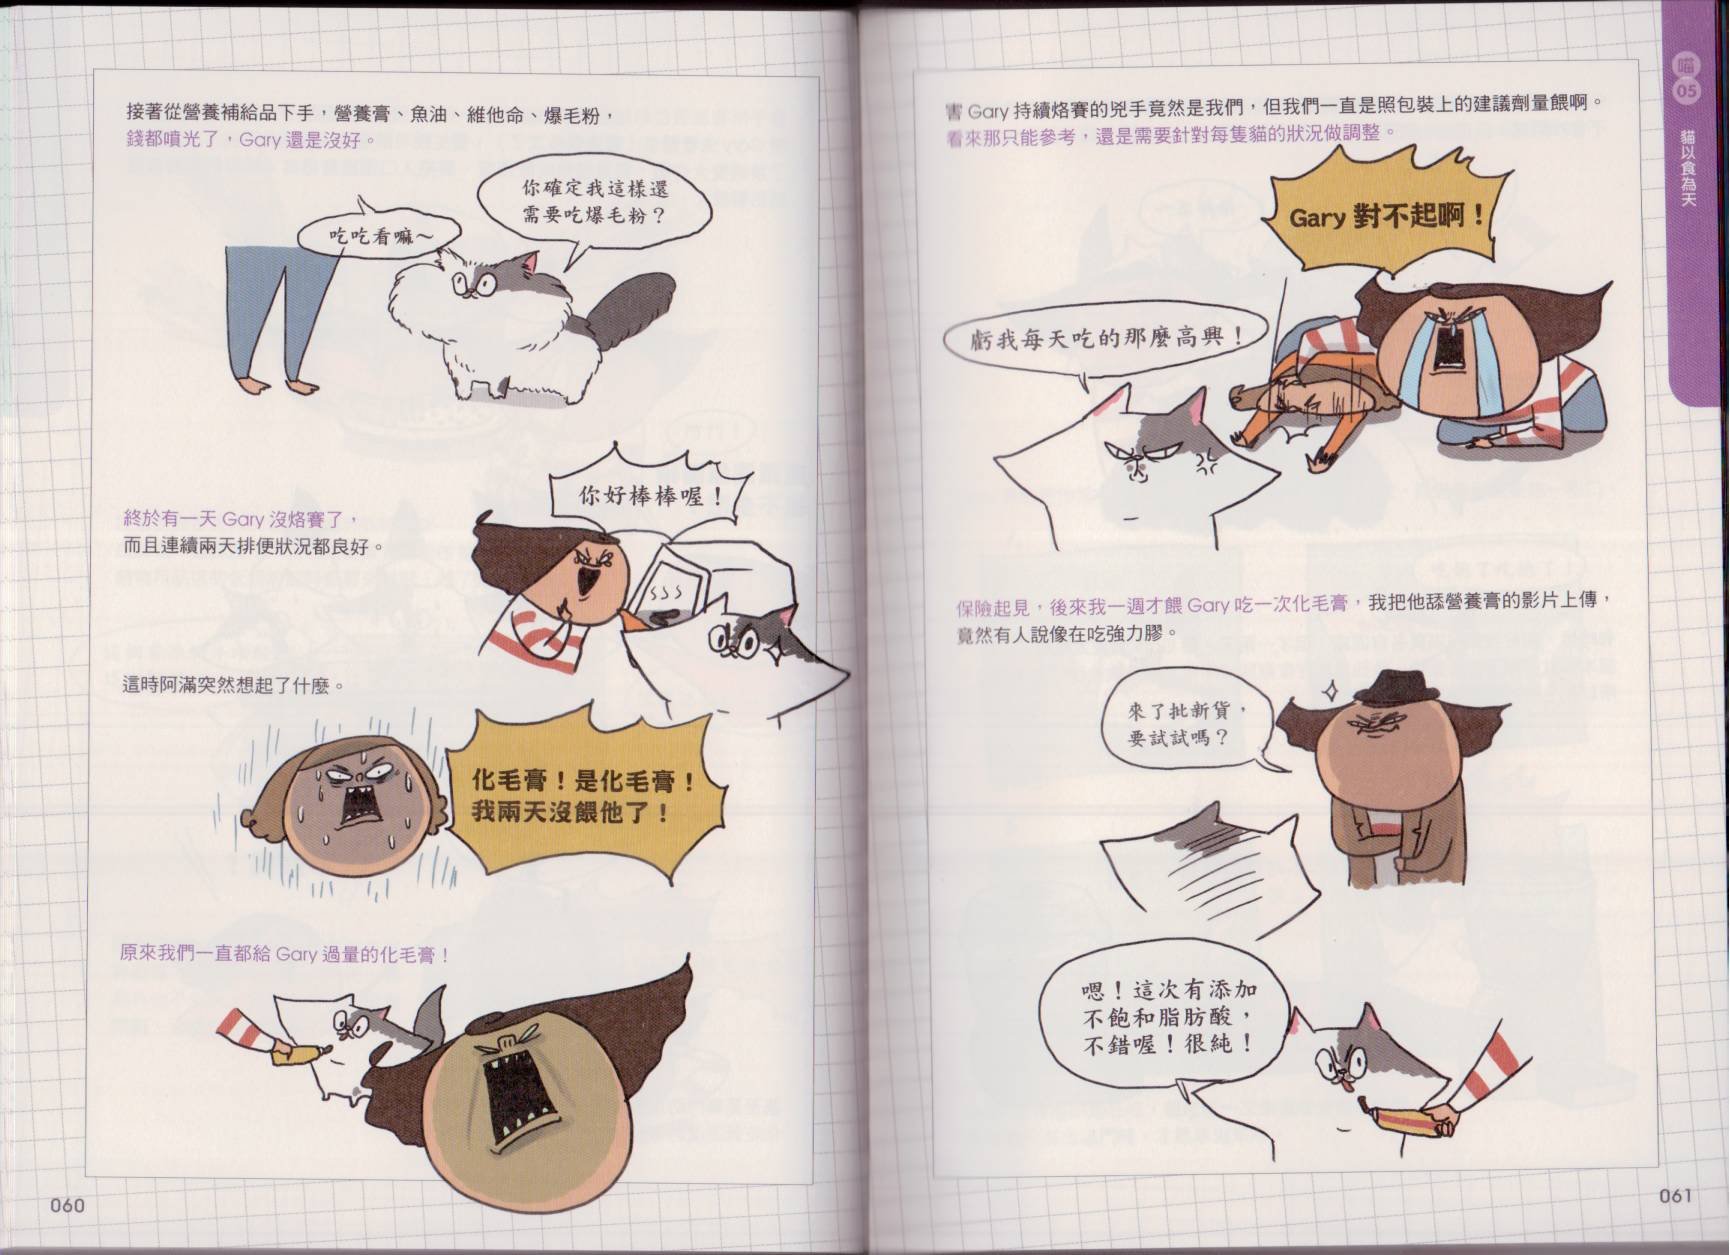 接著從營養補給品下手，營養膏、魚油、維他命、爆毛粉，
錢都噴光了，Gary 還是沒好。
你確定我這樣還
需要吃爆毛粉？
吃吃看嘛～
你好棒棒喔！
終於有一天 Gary 沒烙賽了，
而且連續兩天排便狀況都良好。
這時阿滿突然想起了什麼。
化毛膏！是化毛膏！
我兩天沒餵他了！
原來我們一直都給 Gary 過量的化毛膏！
060
喵
05
貓以食為天
害 Gary 持續烙賽的兇手竟然是我們，但我們一直是照包裝上的建議劑量餵啊。
看來那只能參考，還是需要針對每隻貓的狀況做調整。
Gary 對不起啊！
虧我每天吃的那麼高興！
保險起見，後來我一週才餵 Gary 吃一次化毛膏，我把他舔營養膏的影片上傳，
竟然有人說像在吃強力膠。
來了批新貨，
要試試嗎？
嗯！這次有添加
不飽和脂肪酸，
不錯喔！很純！
061